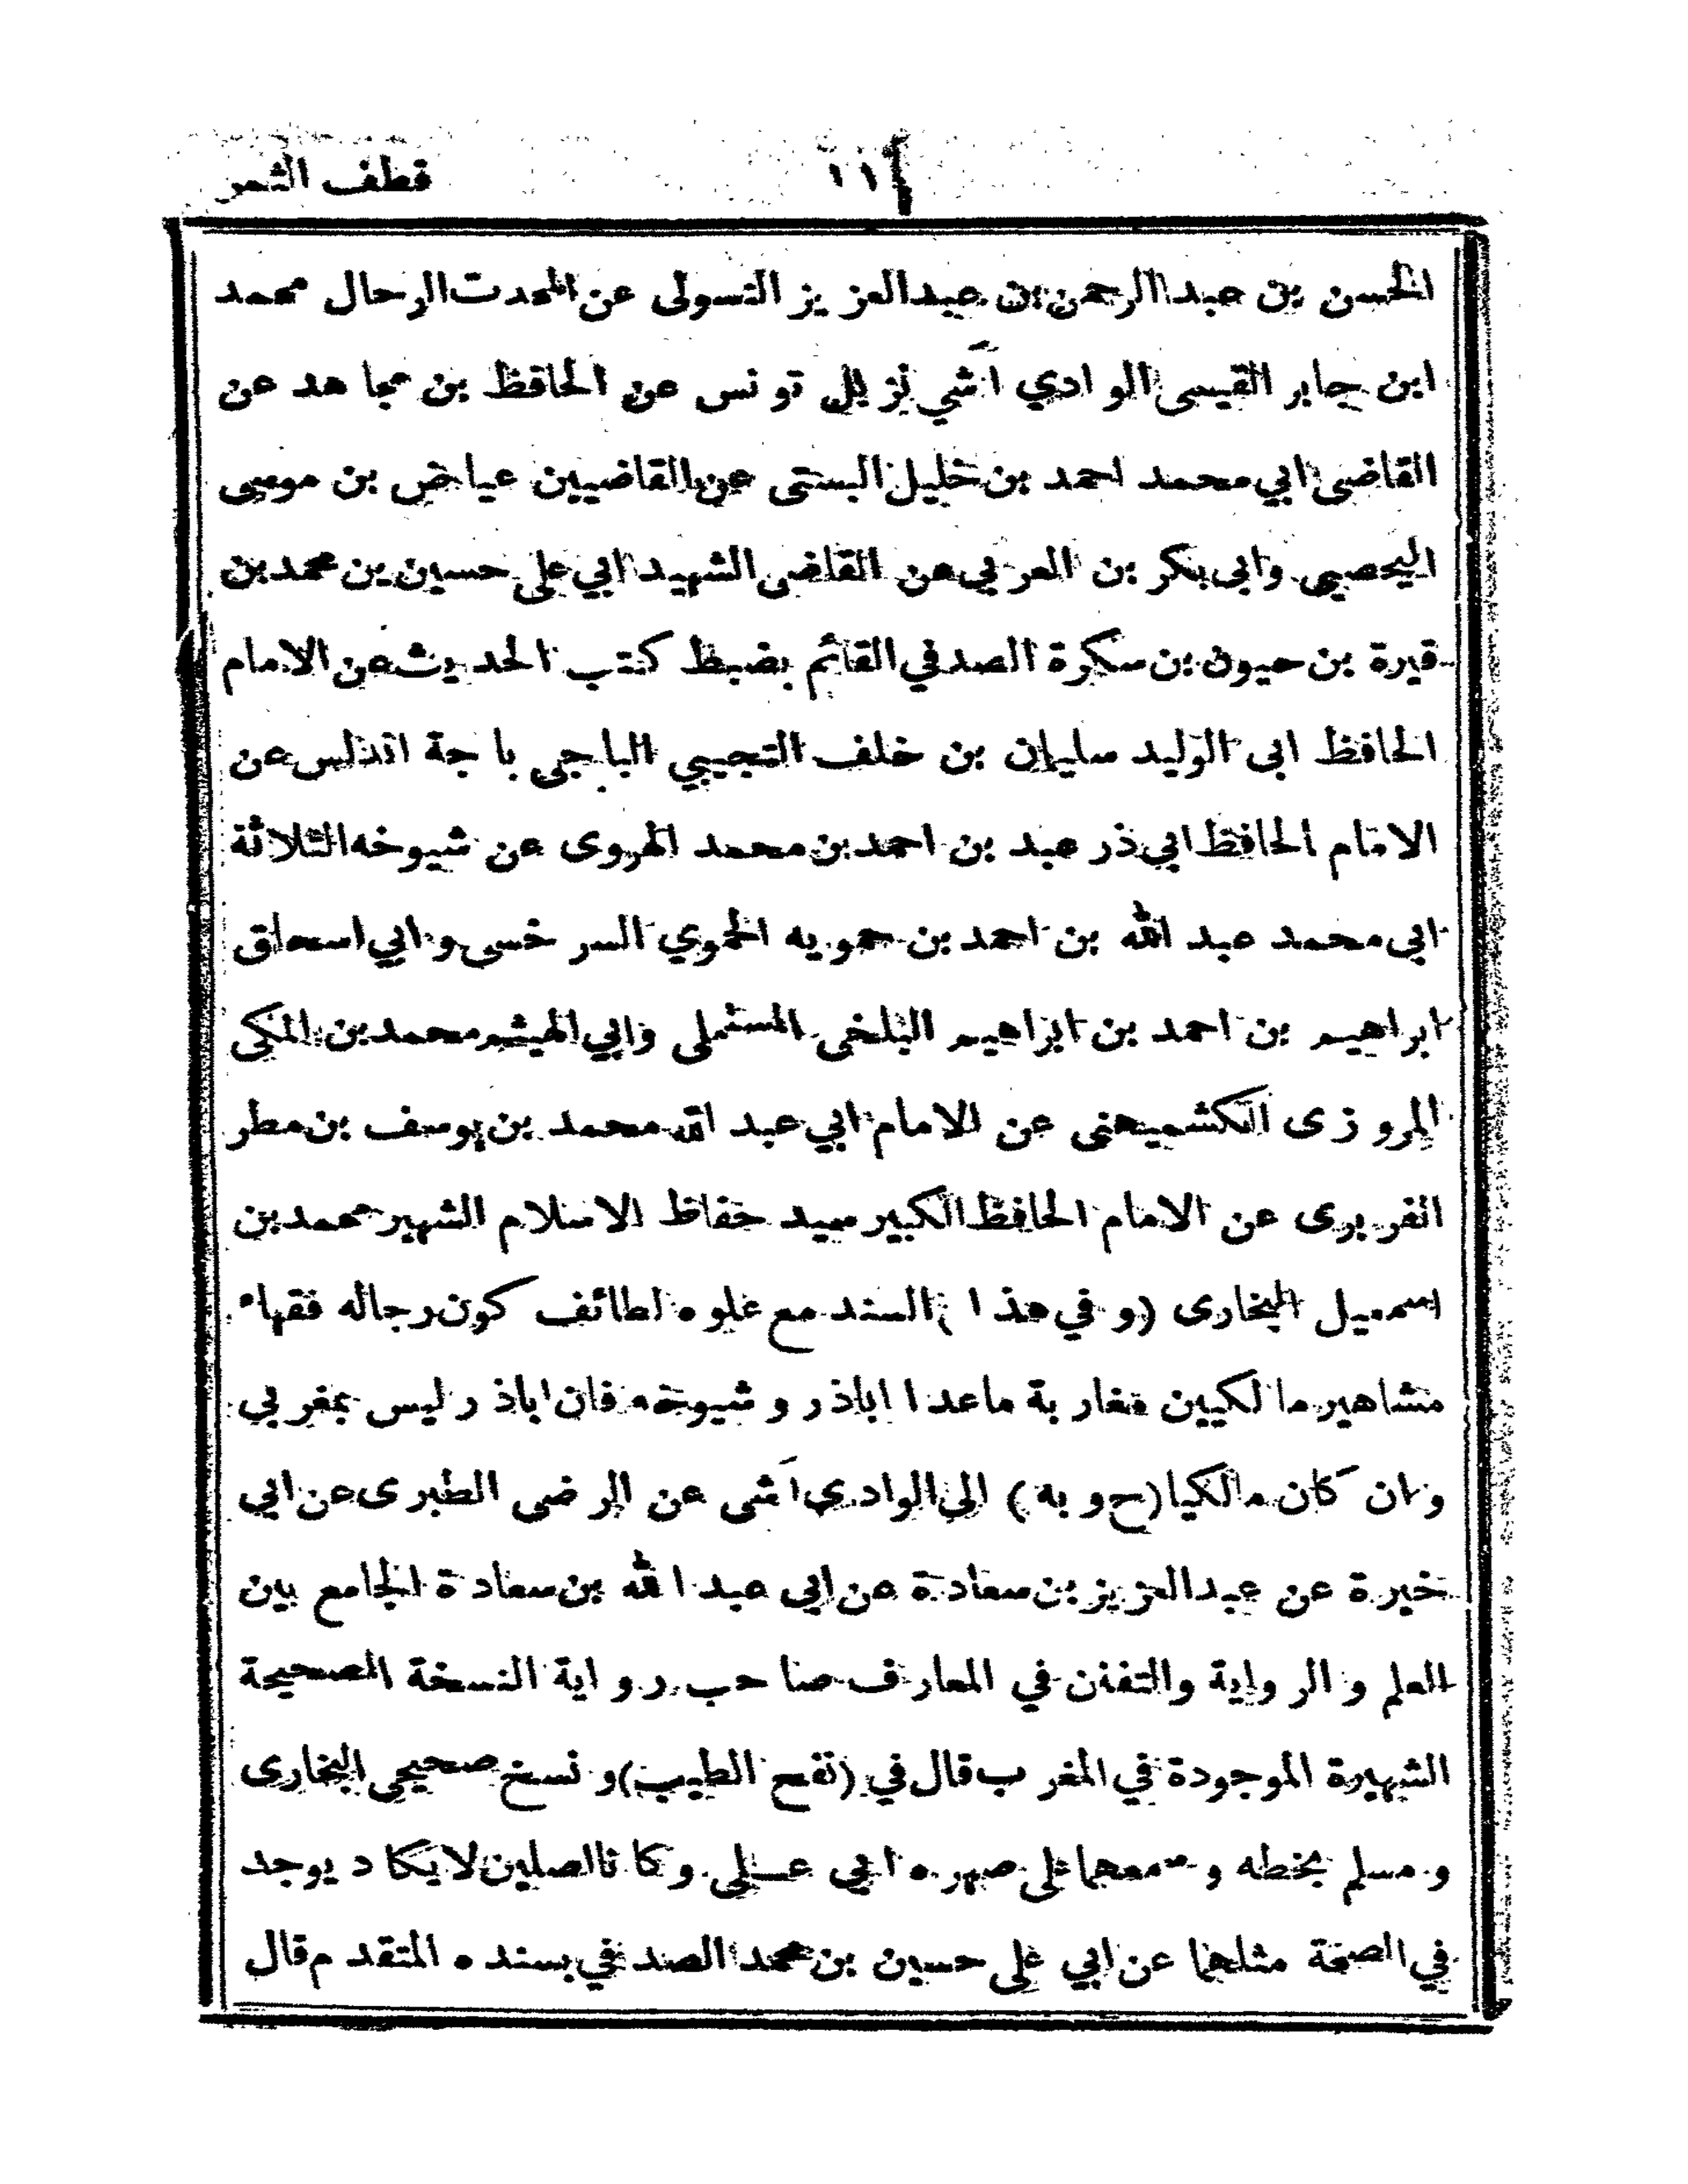 قطف الثمر
١١
الحسن بن عبد الرحمن بن عبد العزيز التسولى عن المحدث الرحال محمد
ابن جابر القيسى الوادي آشي نزيل تونس عن الحافظ بن مجاهد عن
القاضى ابي محمد احمد بن خليل البستى عن القاضيين عياض بن موسى
اليحصبى وابى بكر بن العربي عن القاضى الشهيد ابي على حسين بن محمد بن
قيرة بن حيون بن سكرة الصدفي القائم بضبط كتب الحديث عن الامام
الحافظ ابى الوليد سليمان بن خلف التجيبي الباجى باجة اندلس عن
الامام الحافظ ابي ذر عبد بن احمد بن محمد الهروى عن شيوخه الثلاثة
ابى محمد عبد الله بن احمد بن حمويه الحموي السرخسى و ابي اسحاق
ابراهيم بن احمد بن ابراهيم البلخى المستملى وابي الهيثم محمد بن المكى
المروزى الكشميهنى عن الامام ابي عبد الله محمد بن يوسف بن مطر
الفربرى عن الامام الحافظ الكبير سيد حفاظ الاسلام الشهير محمد بن
اسمعيل البخارى (و في هذا) السند مع علوه لطائف كون رجاله فقهاء
مشاهير مالكيين مغاربة ماعدا اباذر و شيوخه فان اباذر ليس بمغربي
وان كان مالكيا (ح وبه) الى الوادي آشى عن الرضى الطبرى عن ابي
خيرة عن عبد العزيز بن سعادة عن ابي عبد الله بن سعادة الجامع بين
العلم و الرواية والتفنن في المعارف صاحب رواية النسخة الصحيحة
الشهيرة الموجودة في المغرب قال في (نفح الطيب) و نسخ صحيحى البخارى
و مسلم بخطه و سمعهما على صهره ابي عــلى وكانا اصلين لايكاد يوجد
في الصحة مثلهما عن ابي على حسين بن محمد الصدفي بسنده المتقدم قال